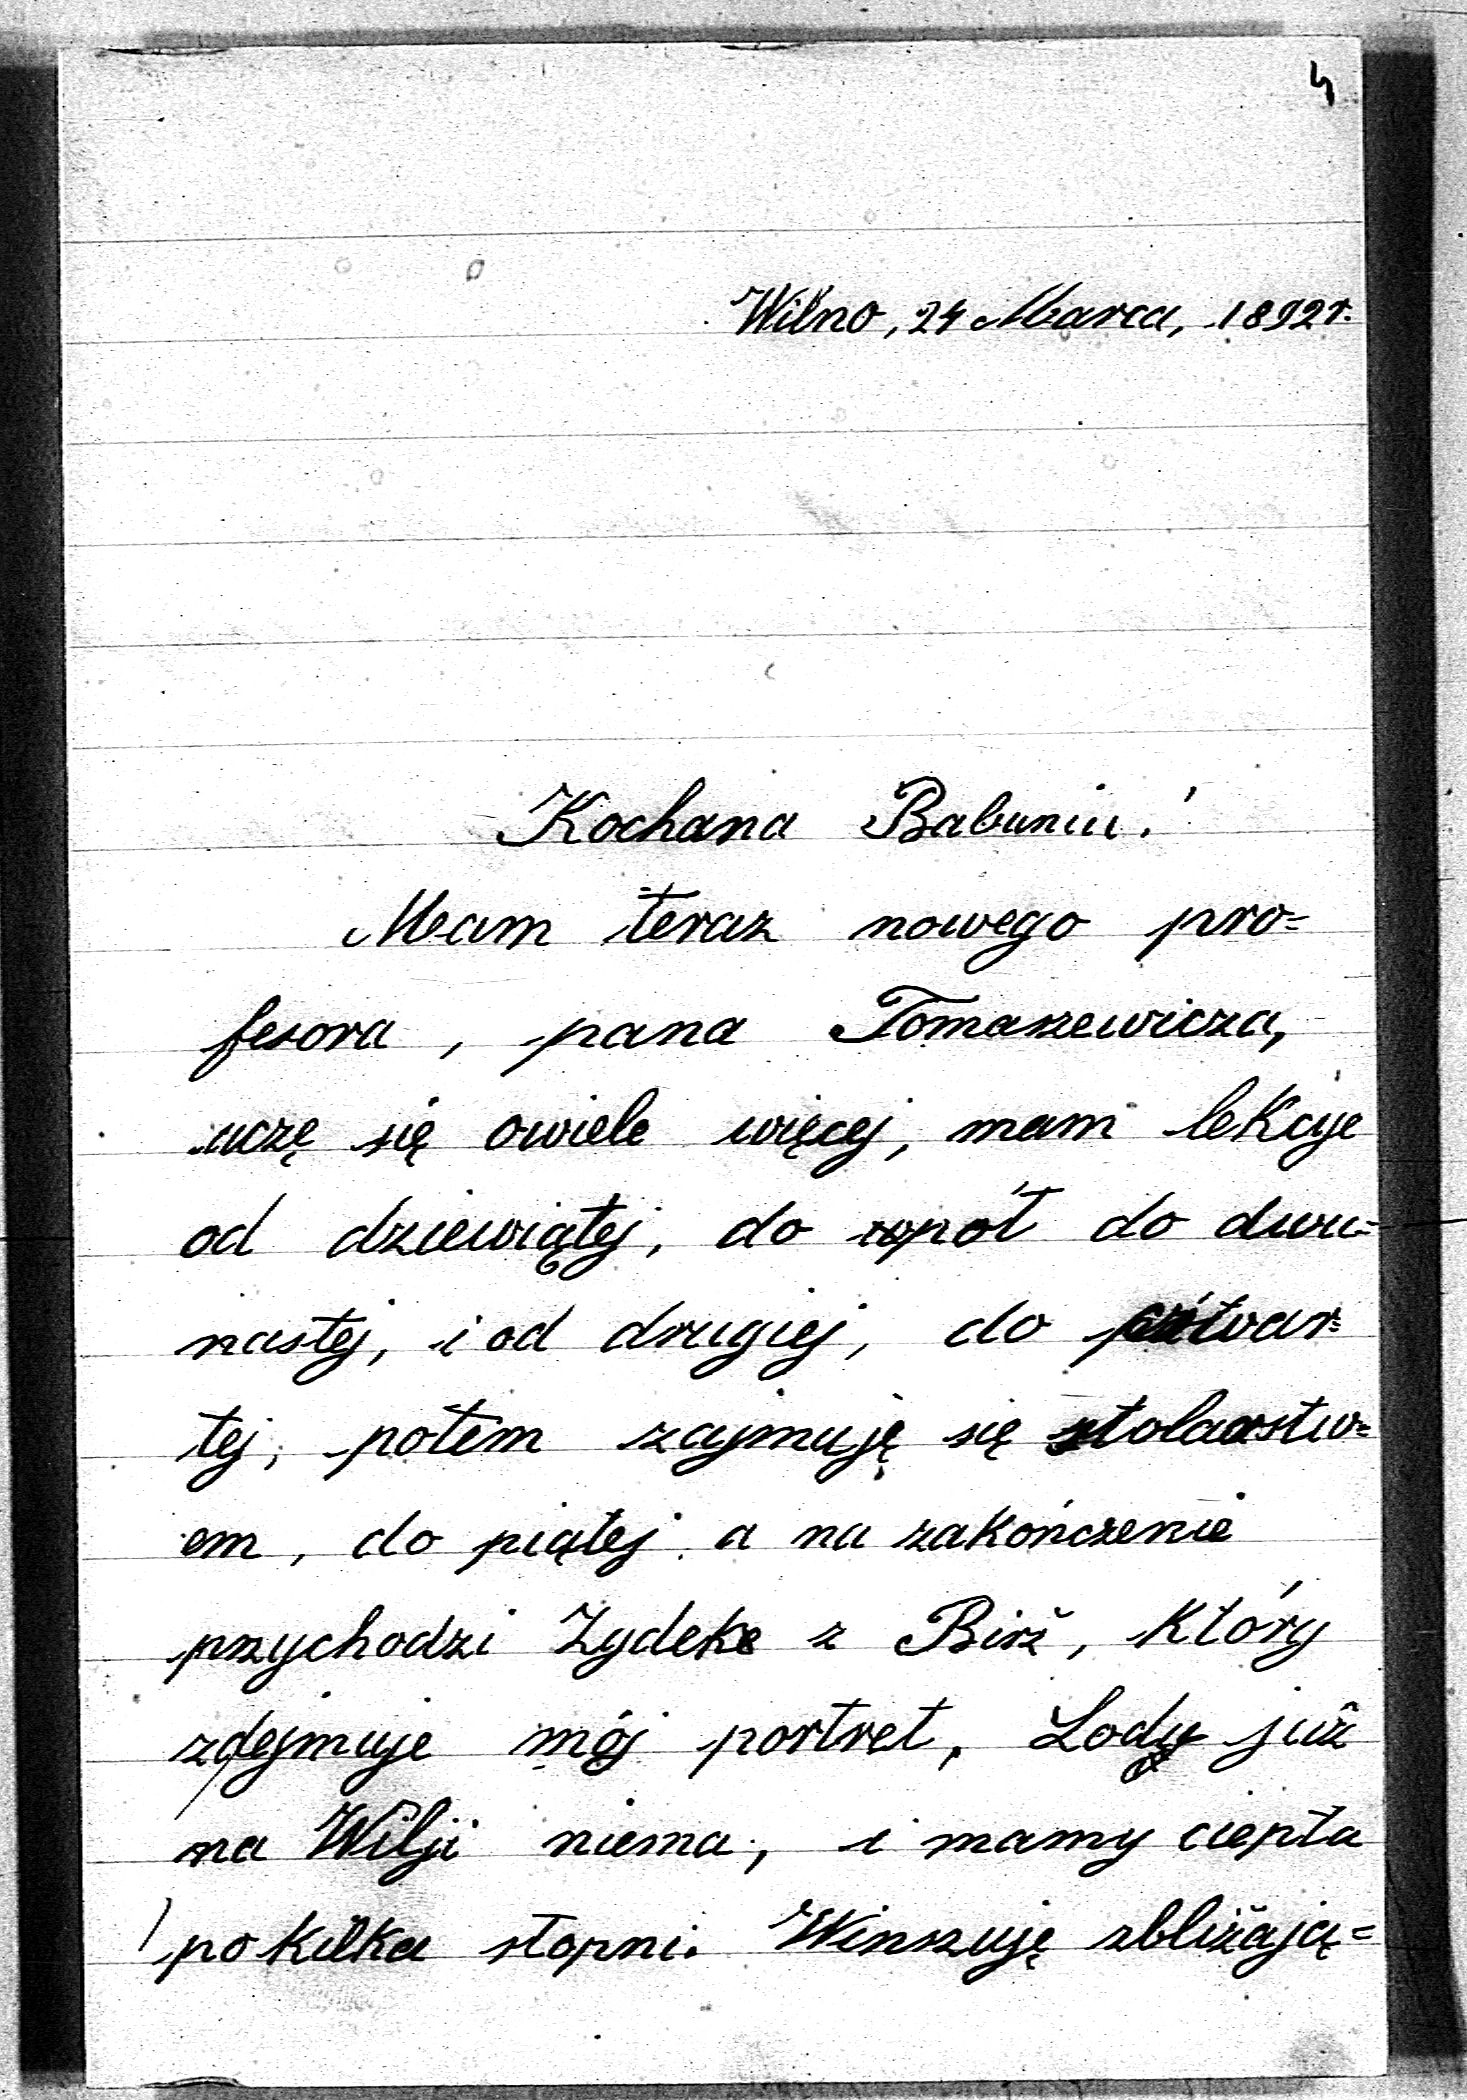 4
Wilno, 24 Marca, 1892 r.
Kochana Babuniu!
Mam teraz nowego pro=
fesora, pana Tomaszewicza,
uczę się owiele więcej, mam lekcje
od dziewiątej, do wpół do dwu=
nastej, i od drugiej, do cztwar=
tej, potem zajmuję się stolarstw=
em, do piątej, a na zakończenie
przychodzi Zydek z Birż, który
zdejmuje mój portret. Lody już
na Wilji niema, i mamy ciepła
po kilka stopni. Winszuję zbliżają=